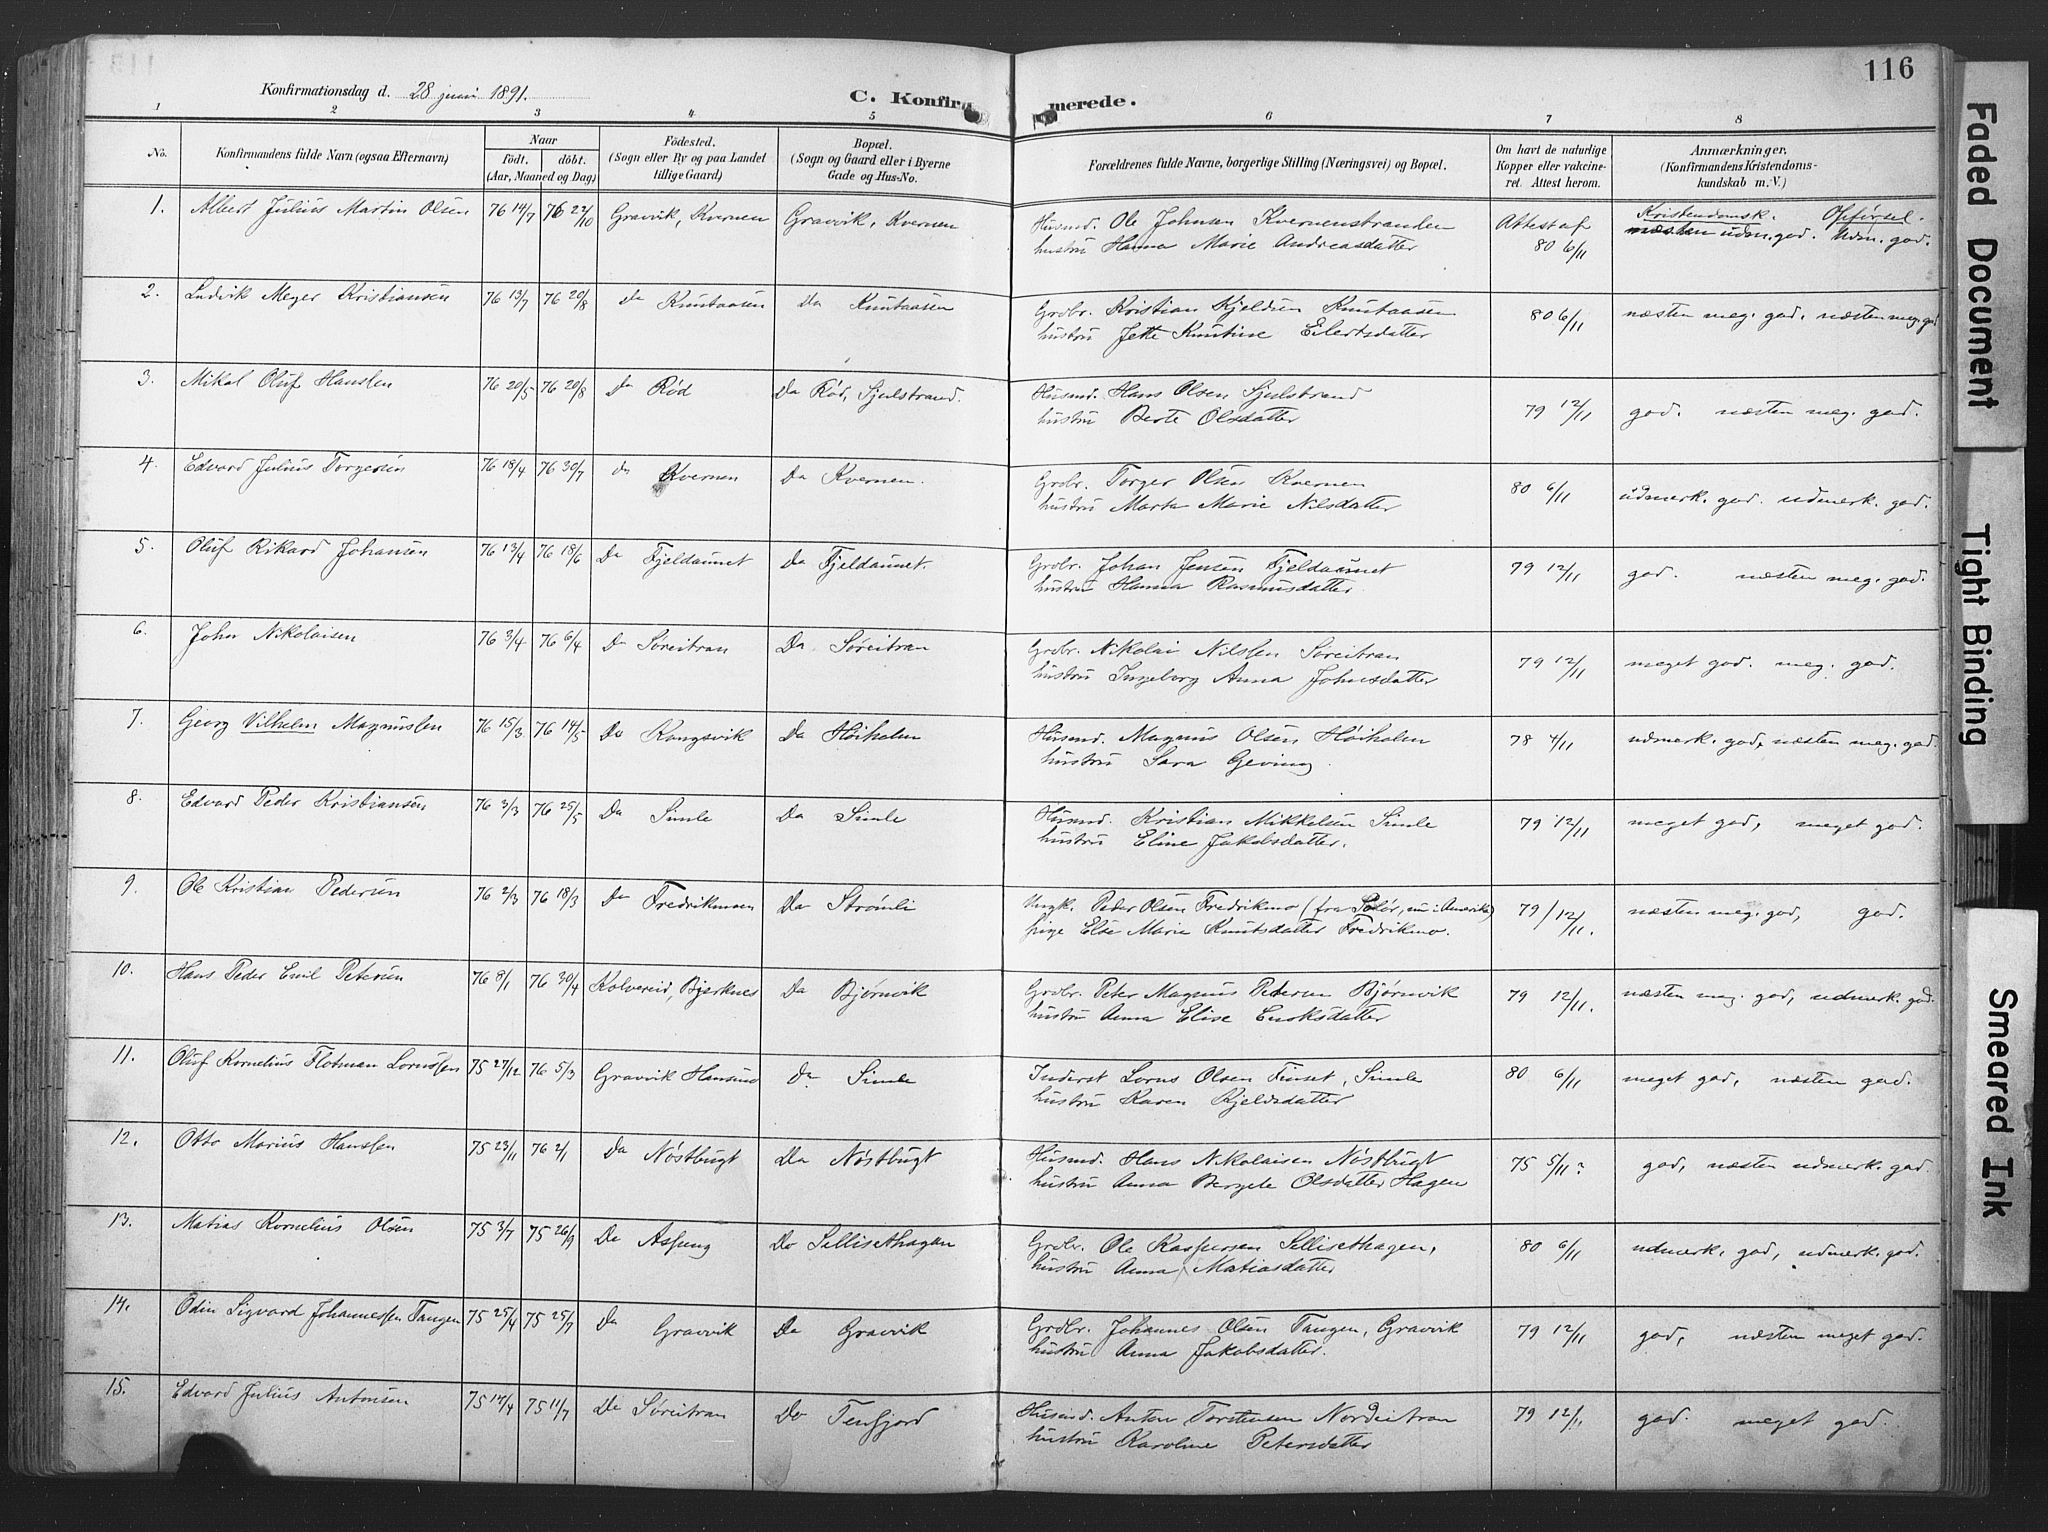 116
Konfirmationsdag d. 28 juni 1891.
C. Konfirmerede.
1 2 3 4 5 6 7 8
No. Konfirmandens fulde Navn (ogsaa Efternavn) Naar Födested. (Sogn eller By og paa Landet tillige Gaard) Bopæl. (Sogn og Gaard eller i Byerne Gade og Hus-No. Forældrenes fulde Navne, borgerlige Stilling (Næringsvei) og Bopæl. Om havt de naturlige Kopper eller vakcineret. Attest herom. Anmærkninger. (Konfirmandens Kristendomskundskab m. V.)
födt. döbt. (Aar, Maaned og Dag)
Kristendomsk. Opførsel.
1. Albert Julius Martin Olsen 76 14/7 76 22/10 Gravvik, Kvernen Gravvik, Kvernen Husmd. Ole Johnsen Kvernenstranden Attest af næsten udm. god. Udm. god.
hustru Hanna Marie Andreasdatter 80 6/11
2. Ludvik Meyer Kristiansen 76 13/7 76 20/8 Do Knutaasen Do Knutaasen Grdbr. Kristian Kjeldsen Knutaasen 80 6/11 næsten meg. god, næsten meg. god
hustru Jette Knutine Eilertsdatter
3. Mikal Oluf Hanssen 76 20/5 76 20/8 Do Rød Do Rød, Sjulstrand. Husmd. Hans Olsen Sjulstrand 79 12/11 god. næsten meg. god.
hustru Berte Olsdatter
4. Edvard Julius Torgersen 76 18/4 76 30/7 do Kvernen Do Kvernen. Grdbr. Torger Olsen Kvernen 80 6/11 udmerk. god. udmerk. god.
hustru Marta Marie Nilsdatter
5. Oluf Rikard Johansen 76 13/4 76 18/6 Do Fjeldaunet Do Fjeldaunet. Grdbr. Johan Jensen Fjeldaunet 79 12/11 god. næsten meg. god.
hustru Hanna Rasmusdatter
6. Johan Nikolaisen 76 3/4 76 6/4 Do Søreitran Do Søreitran Grdbr. Nikolai Nilssen Søreitran 79 12/11 meget god. meg. god.
hustru Ingeborg Anna Johnsdatter
7. Georg Vilhelm Magnussen 76 15/3 76 14/5 Do Kongsvik Do Høiholm Husmd. Magnus Olsen Høiholm 78 4/11 udmerk. god, næsten meg. god.
hustru Sara Geving
8. Edvard Peder Kristiansen 76 3/3 76 25/5 Do Simle Do Simle Husmd. Kristian Mikkelsen Simle 79 12/11 meget god, meget god.
hustru Eline Jakobsdatter.
9. Ole Kristian Pedersen 76 2/3 76 18/3 Do Fredrikmoen Do Strømli Ungk. Peder Olsen Fredrikmo (fra Solør, nu i Amerika) 79 12/11. næsten meg. god, god.
pige Else Marie Knutsdatter Fredrikmo.
10. Hans Peder Emil Petersen 76 8/1 76 30/4 Kolvereid, Bjerknes Do Bjørnvik Grdbr. Peter Magnus Petersen Bjørnvik 79 12/11. næsten meg. god, udmerk. god.
hustru Anna Elise Enoksdatter
11. Oluf Kornelius Flotman Lornssen 75 27/12 76 5/3 Gravvik Hansmo do Simle Inderst Lorns Olsen Finset, Simle 80 6/11 meget god, næsten god.
hustru Karen Kjeldsdatter
12. Otto Marius Hanssen 75 23/11 76 2/1 Do Nøstbugt Do Nøstbugt Husmd. Hans Nikolaisen Nøstbugt 75 5/11? god, næsten udmerk. god.
hustru Anna Bergete Olsdatter Hagen
13. Matias Kornelius Olsen 75 3/7 75 26/9 Do Aspeng Do Sellisethagen Grdbr. Ole Kaspersen Sellisethagen, 80 6/11 udmerk. god, udmerk. god.
hustru Anna Matiasdatter
14. Odin Sigvard Johannessen Tangen 75 25/4 75 25/7 Do Gravvik Do Gravvik Grdbr. Johannes Olsen Tangen, Gravvik 79 12/11 god, næsten meget god.
hustru Anna Jakobsdatter.
15. Edvard Julius Antonsen 75 14/4 75 11/7 Do Søreitran Do Tenfjord Husmd. Anton Torstensen Nordeitran 79 12/11 god. meget god.
hustru Karoline Petersdatter
Faded Document
Tight Binding
Smeared Ink